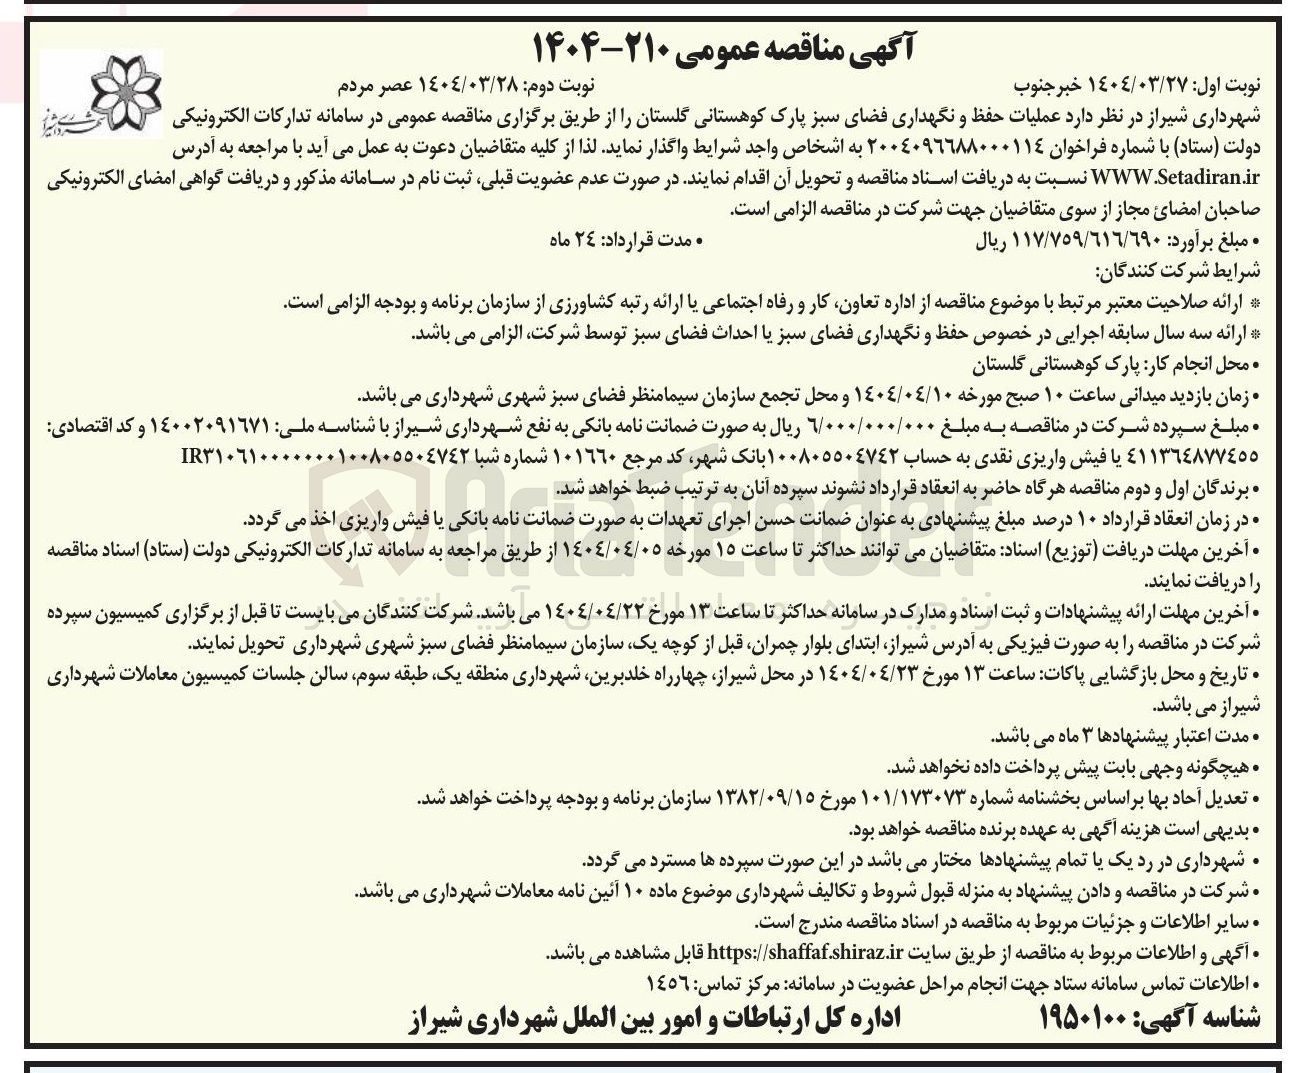 آگهی مناقصه عمومی ۲۱۰-۱۴۰۴
نوبت اول: ۱۴۰۴/۰۳/۲۷ خبرجنوب نوبت دوم: ۱۴۰۴/۰۳/۲۸ عصر مردم
شهرداری شیراز
شهرداری شیراز در نظر دارد عملیات حفظ و نگهداری فضای سبز پارک کوهستانی گلستان را از طریق برگزاری مناقصه عمومی در سامانه تدارکات الکترونیکی
دولت (ستاد) با شماره فراخوان ۲۰۰۴۰۹۶۶۸۸۰۰۰۱۱۴ به اشخاص واجد شرایط واگذار نماید. لذا از کلیه متقاضیان دعوت به عمل می آید با مراجعه به آدرس
WWW.Setadiran.ir نسبت به دریافت اسناد مناقصه و تحویل آن اقدام نمایند. در صورت عدم عضویت قبلی، ثبت نام در سامانه مذکور و دریافت گواهی امضای الکترونیکی
صاحبان امضائ مجاز از سوی متقاضیان جهت شرکت در مناقصه الزامی است.
• مبلغ برآورد: ۱۱۷/۷۵۹/۶۱۶/۶۹۰ ریال • مدت قرارداد: ۲۴ ماه
شرایط شرکت کنندگان:
* ارائه صلاحیت معتبر مرتبط با موضوع مناقصه از اداره تعاون، کار و رفاه اجتماعی یا ارائه رتبه کشاورزی از سازمان برنامه و بودجه الزامی است.
* ارائه سه سال سابقه اجرایی در خصوص حفظ و نگهداری فضای سبز یا احداث فضای سبز توسط شرکت، الزامی می باشد.
• محل انجام کار: پارک کوهستانی گلستان
• زمان بازدید میدانی ساعت ۱۰ صبح مورخه ۱۴۰۴/۰۴/۱۰ و محل تجمع سازمان سیمامنظر فضای سبز شهری شهرداری می باشد.
• مبلغ سپرده شرکت در مناقصه به مبلغ ۶/۰۰۰/۰۰۰/۰۰۰ ریال به صورت ضمانت نامه بانکی به نفع شهرداری شیراز با شناسه ملی: ۱۴۰۰۲۰۹۱۶۷۱ و کد اقتصادی:
۴۱۱۳۶۴۸۷۷۴۵۵ یا فیش واریزی نقدی به حساب ۱۰۰۸۰۵۵۰۴۷۴۲بانک شهر، کد مرجع ۱۰۱۶۶۰ شماره شبا IR۳۱۰۶۱۰۰۰۰۰۰۰۱۰۰۸۰۵۵۰۴۷۴۲
• برندگان اول و دوم مناقصه هرگاه حاضر به انعقاد قرارداد نشوند سپرده آنان به ترتیب ضبط خواهد شد.
• در زمان انعقاد قرارداد ۱۰ درصد مبلغ پیشنهادی به عنوان ضمانت حسن اجرای تعهدات به صورت ضمانت نامه بانکی یا فیش واریزی اخذ می گردد.
• آخرین مهلت دریافت (توزیع) اسناد: متقاضیان می توانند حداکثر تا ساعت ۱۵ مورخه ۱۴۰۴/۰۴/۰۵ از طریق مراجعه به سامانه تدارکات الکترونیکی دولت (ستاد) اسناد مناقصه
را دریافت نمایند.
• آخرین مهلت ارائه پیشنهادات و ثبت اسناد و مدارک در سامانه حداکثر تا ساعت ۱۳ مورخ ۱۴۰۴/۰۴/۲۲ می باشد. شرکت کنندگان می بایست تا قبل از برگزاری کمیسیون سپرده
شرکت در مناقصه را به صورت فیزیکی به آدرس شیراز، ابتدای بلوار چمران، قبل از کوچه یک، سازمان سیمامنظر فضای سبز شهری شهرداری تحویل نمایند.
• تاریخ و محل بازگشایی پاکات: ساعت ۱۳ مورخ ۱۴۰۴/۰۴/۲۳ در محل شیراز، چهارراه خلدبرین، شهرداری منطقه یک، طبقه سوم، سالن جلسات کمیسیون معاملات شهرداری
شیراز می باشد.
• مدت اعتبار پیشنهادها ۳ ماه می باشد.
• هیچگونه وجهی بابت پیش پرداخت داده نخواهد شد.
• تعدیل آحاد بها براساس بخشنامه شماره ۱۰۱/۱۷۳۰۷۳ مورخ ۱۳۸۲/۰۹/۱۵ سازمان برنامه و بودجه پرداخت خواهد شد.
• بدیهی است هزینه آگهی به عهده برنده مناقصه خواهد بود.
• شهرداری در رد یک یا تمام پیشنهادها مختار می باشد در این صورت سپرده ها مسترد می گردد.
• شرکت در مناقصه و دادن پیشنهاد به منزله قبول شروط و تکالیف شهرداری موضوع ماده ۱۰ آئین نامه معاملات شهرداری می باشد.
• سایر اطلاعات و جزئیات مربوط به مناقصه در اسناد مناقصه مندرج است.
• آگهی و اطلاعات مربوط به مناقصه از طریق سایت https://shaffaf.shiraz.ir قابل مشاهده می باشد.
• اطلاعات تماس سامانه ستاد جهت انجام مراحل عضویت در سامانه: مرکز تماس: ۱۴۵۶
شناسه آگهی: ۱۹۵۰۱۰۰ اداره کل ارتباطات و امور بین الملل شهرداری شیراز
AriaTender